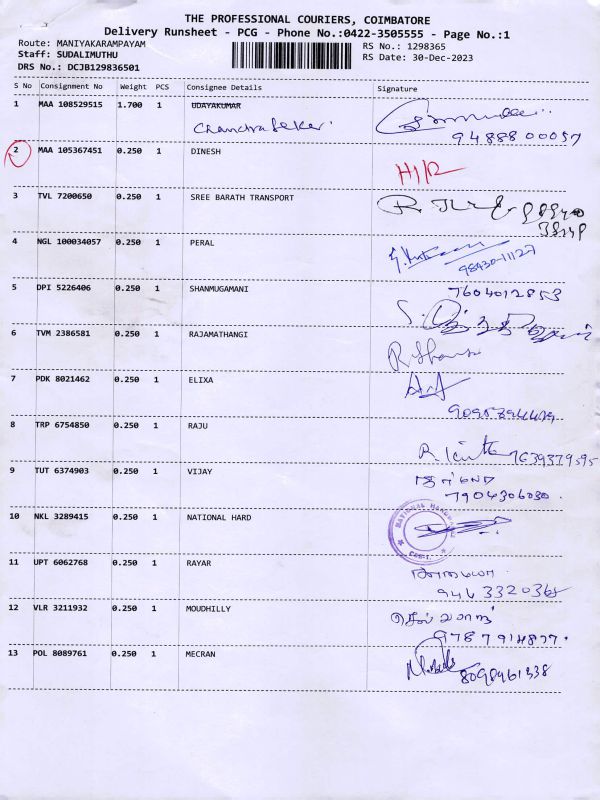 THE PROFESSIONAL COURIERS, COIMBATORE
Delivery Runsheet - PCG - Phone No.:0422-3505555 - Page No.:1
Route: MANIYAKARAMPAYAM
Staff: SUDALIMUTHU
DRS No.: DCJB129836501
RS No.: 1298365
RS Date: 30-Dec-2023
S No Consignment No Weight PCS Consignee Details Signature
1 MAA 108529515 1.700 1 UDAYAKUMAR
Chandrasekar.
94888 00057
2 MAA 105367451 0.250 1 DINESH
H/R
3 TVL 7200650 0.250 1 SREE BARATH TRANSPORT
4 NGL 100034057 0.250 1 PERAL
98430-11127
5 DPI 5226406 0.250 1 SHANMUGAMANI
7604012853
6 TVM 2386581 0.250 1 RAJAMATHANGI
7 PDK 8021462 0.250 1 ELIXA
8 TRP 6754850 0.250 1 RAJU
7639379595
9 TUT 6374903 0.250 1 VIJAY
7904306030.
10 NKL 3289415 0.250 1 NATIONAL HARD
11 UPT 6062768 0.250 1 RAYAR
12 VLR 3211932 0.250 1 MOUDHILLY
9787914877.
13 POL 8089761 0.250 1 MECRAN
8098461338